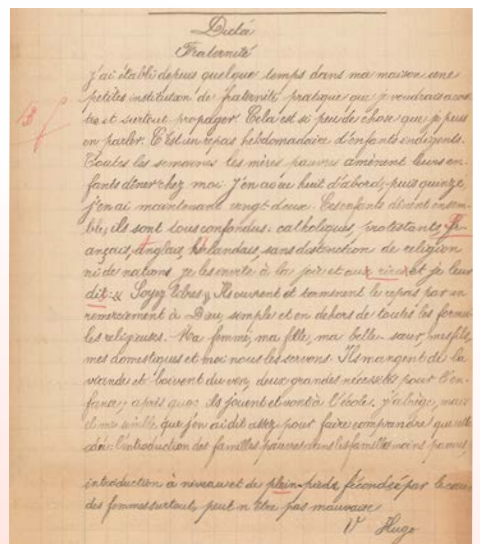 Dictée
Fraternité
j'ai établi depuis quelque temps dans ma maison une
petites institution de fraternité pratique que je voudrais accroî
tre et surtout propager. Cela est si peu de chose que je puis
en parler. C'est un repas hebdomadaire d'enfants indigents.
Toutes les semaines les mères pauvres amènent leurs en-
fants dîner chez moi. J'en ai eu huit d'abord, puis quinze,
j'en ai maintenant vingt-deux. Ces enfants dînent ensem-
ble, ils sont tous confondus. catholiques, protestants, Fr-
ançais, anglais, irlandais, sans distinction de religion
ni de nations, je les invite à la joie et aux rires et je leur
dit: « Soyez libres » Ils ouvrent et terminent le repas par un
remerciement à Dieu, simple et en dehors de toutes les formu-
les religieuses. Ma femme, ma fille, ma belle-sœur, mes fils,
mes domestiques et moi nous les servons. Ils mangent de la
viande et boivent du vin, deux grandes nécessités pour l'en-
fance; après quoi ils jouent et vont à l'école. j'abrège, mais
il me semble que j'en ai dit assez pour faire comprendre que cette
idée: l'introduction des familles pauvres dans les familles moins pauvres,
introduction à niveau et de plein-pieds, fécondée par le cœur
des femmes surtout, peut n'être pas mauvaise
V Hugo